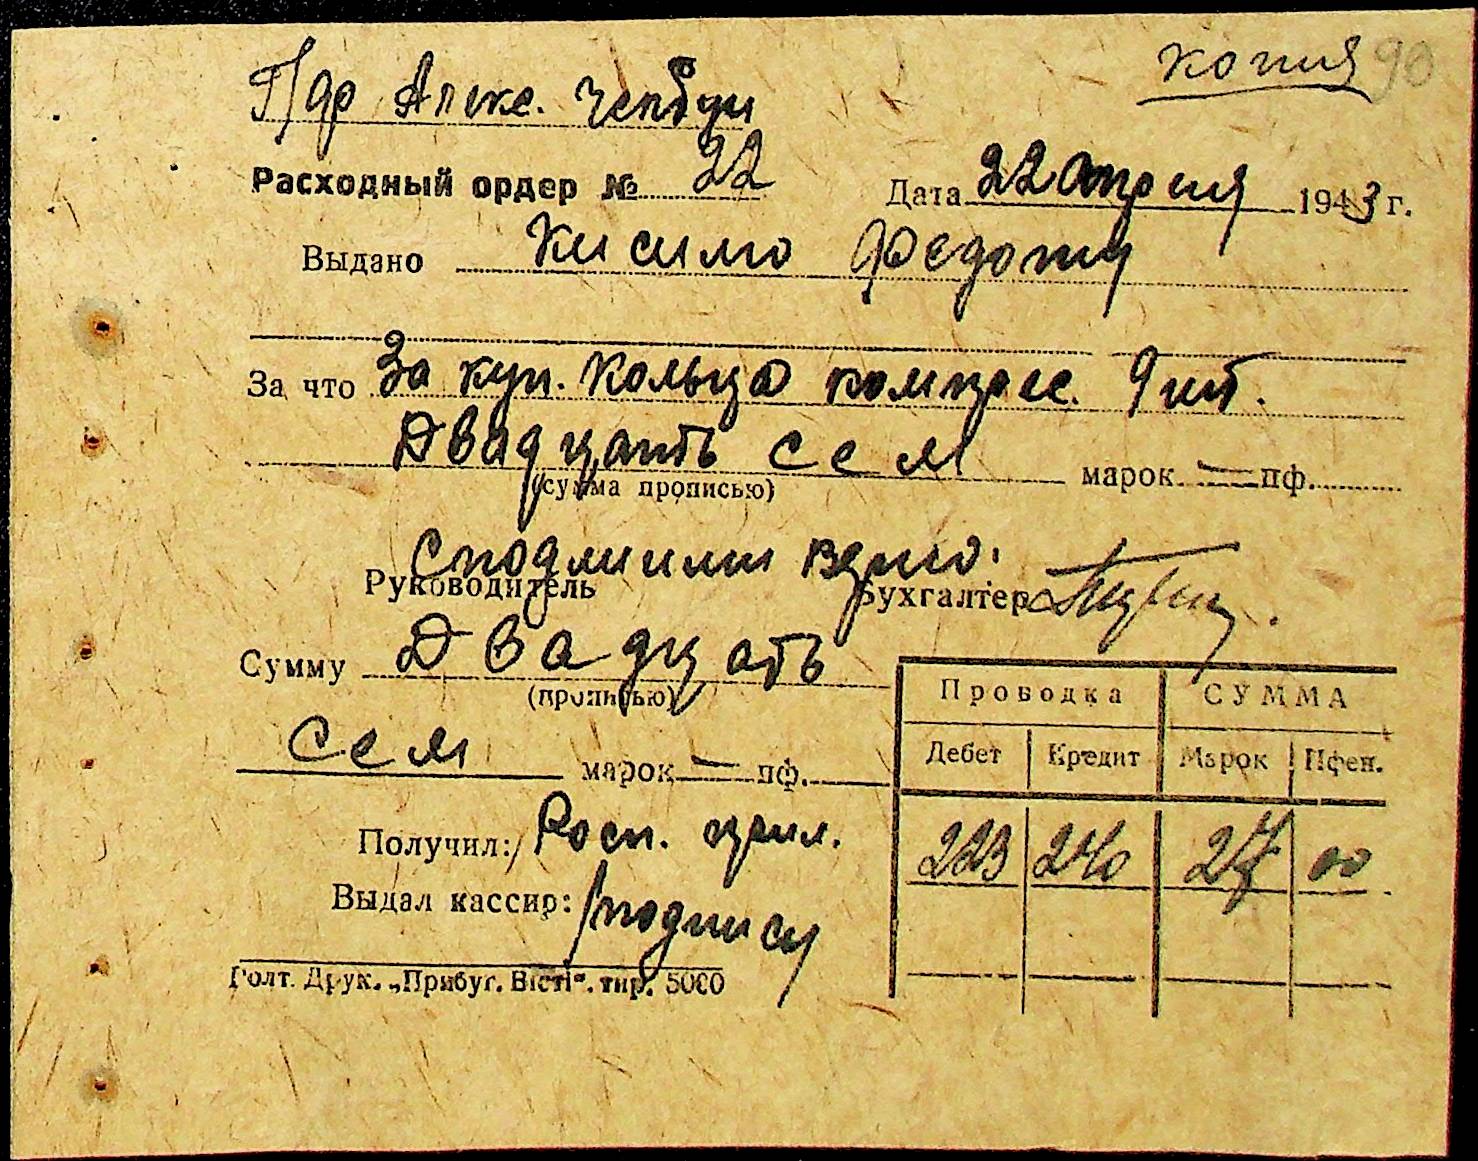 копия 90
Пдр Алекс.
Расходный ордер № 22 Дата 22 апреля 1943 г.
Выдано Кисимо Федоту
За что За куп. Кольца компрес. 9 шт.
Двадцать сем марок — пф.
(сумма прописью)
С подлиним верно.
Руководитель Бухгалтер
Сумму Двадцать
(прописью)
сем марок — пф.
Получил: Росп. прил.
Выдал кассир: /подпись
Голт. Друк. „Прибуг. Вісті“. тир. 5000
Проводка СУММА
Дебет Кредит Марок Пфен.
223 240 27 00